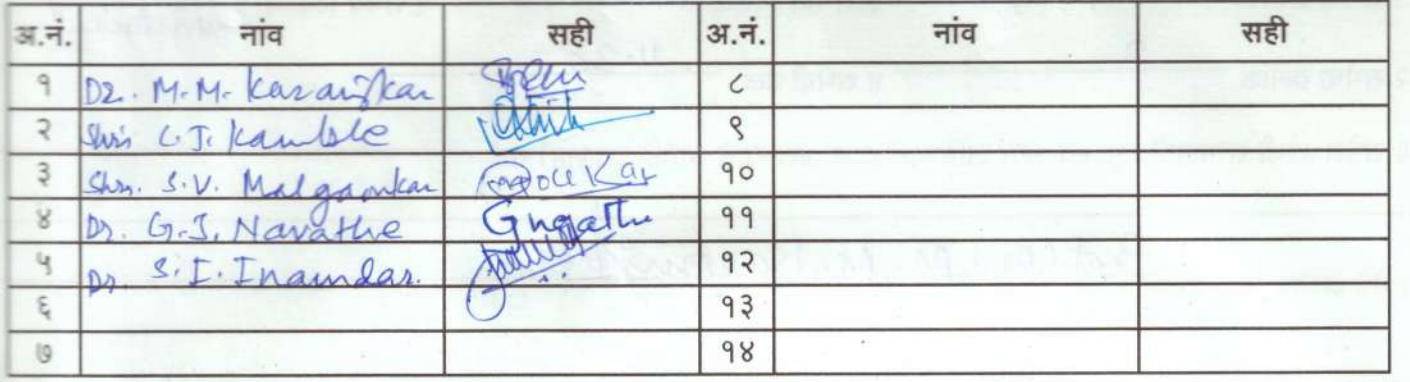 अ.नं. नांव सही अ.नं. नांव सही
१ Dr. M.M. Karanjkar ८
२ Shri C.J. Kamble ९
३ Shri. S.V. Malgaonkar १०
४ Dr. G.S. Navathe ११
५ Dr. S.I. Inamdar. १२
६ १३
७ १४